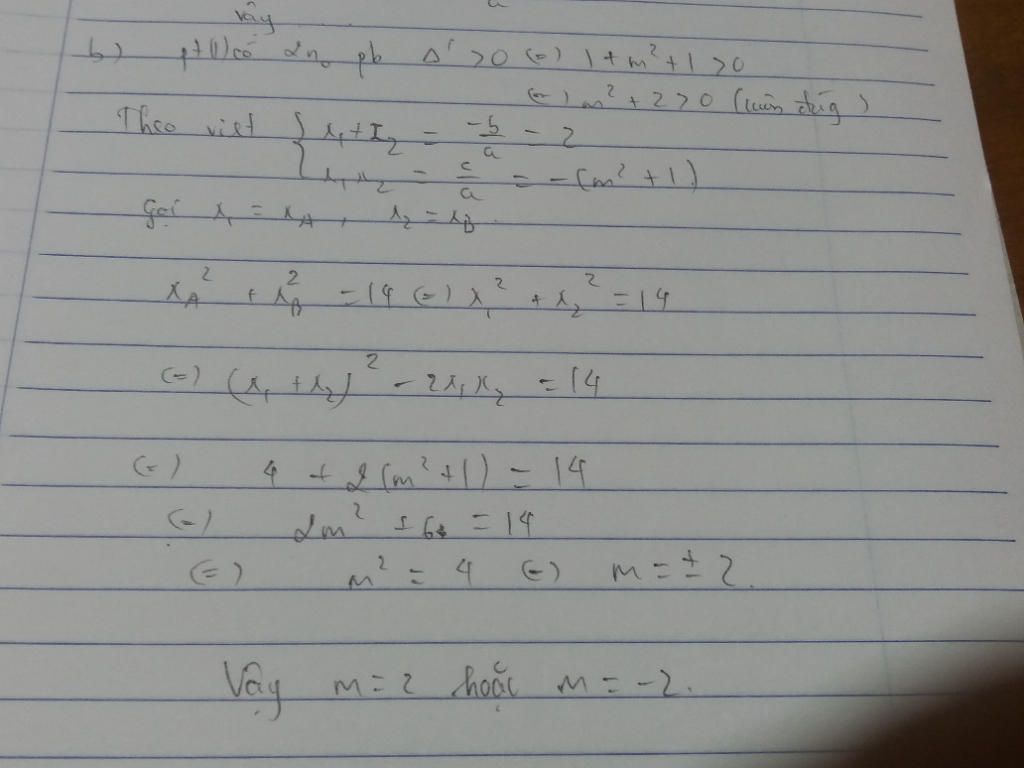 vậy
b) pt(1) có 2no pb Δ' > 0 (=) 1 + m² + 1 > 0
(=) m² + 2 > 0 (luôn đúng)
Theo viet { x₁ + x₂ = -b/a = 2
x₁x₂ = c/a = -(m² + 1)
Gọi x₁ = x_A , x₂ = x_B.
x_A² + x_B² = 14 (=) x₁² + x₂² = 14
(=) (x₁ + x₂)² - 2x₁x₂ = 14
(=) 4 + 2(m² + 1) = 14
(=) 2m² + 6 = 14
(=) m² = 4 (=) m = ± 2.
Vậy m = 2 hoặc m = -2.